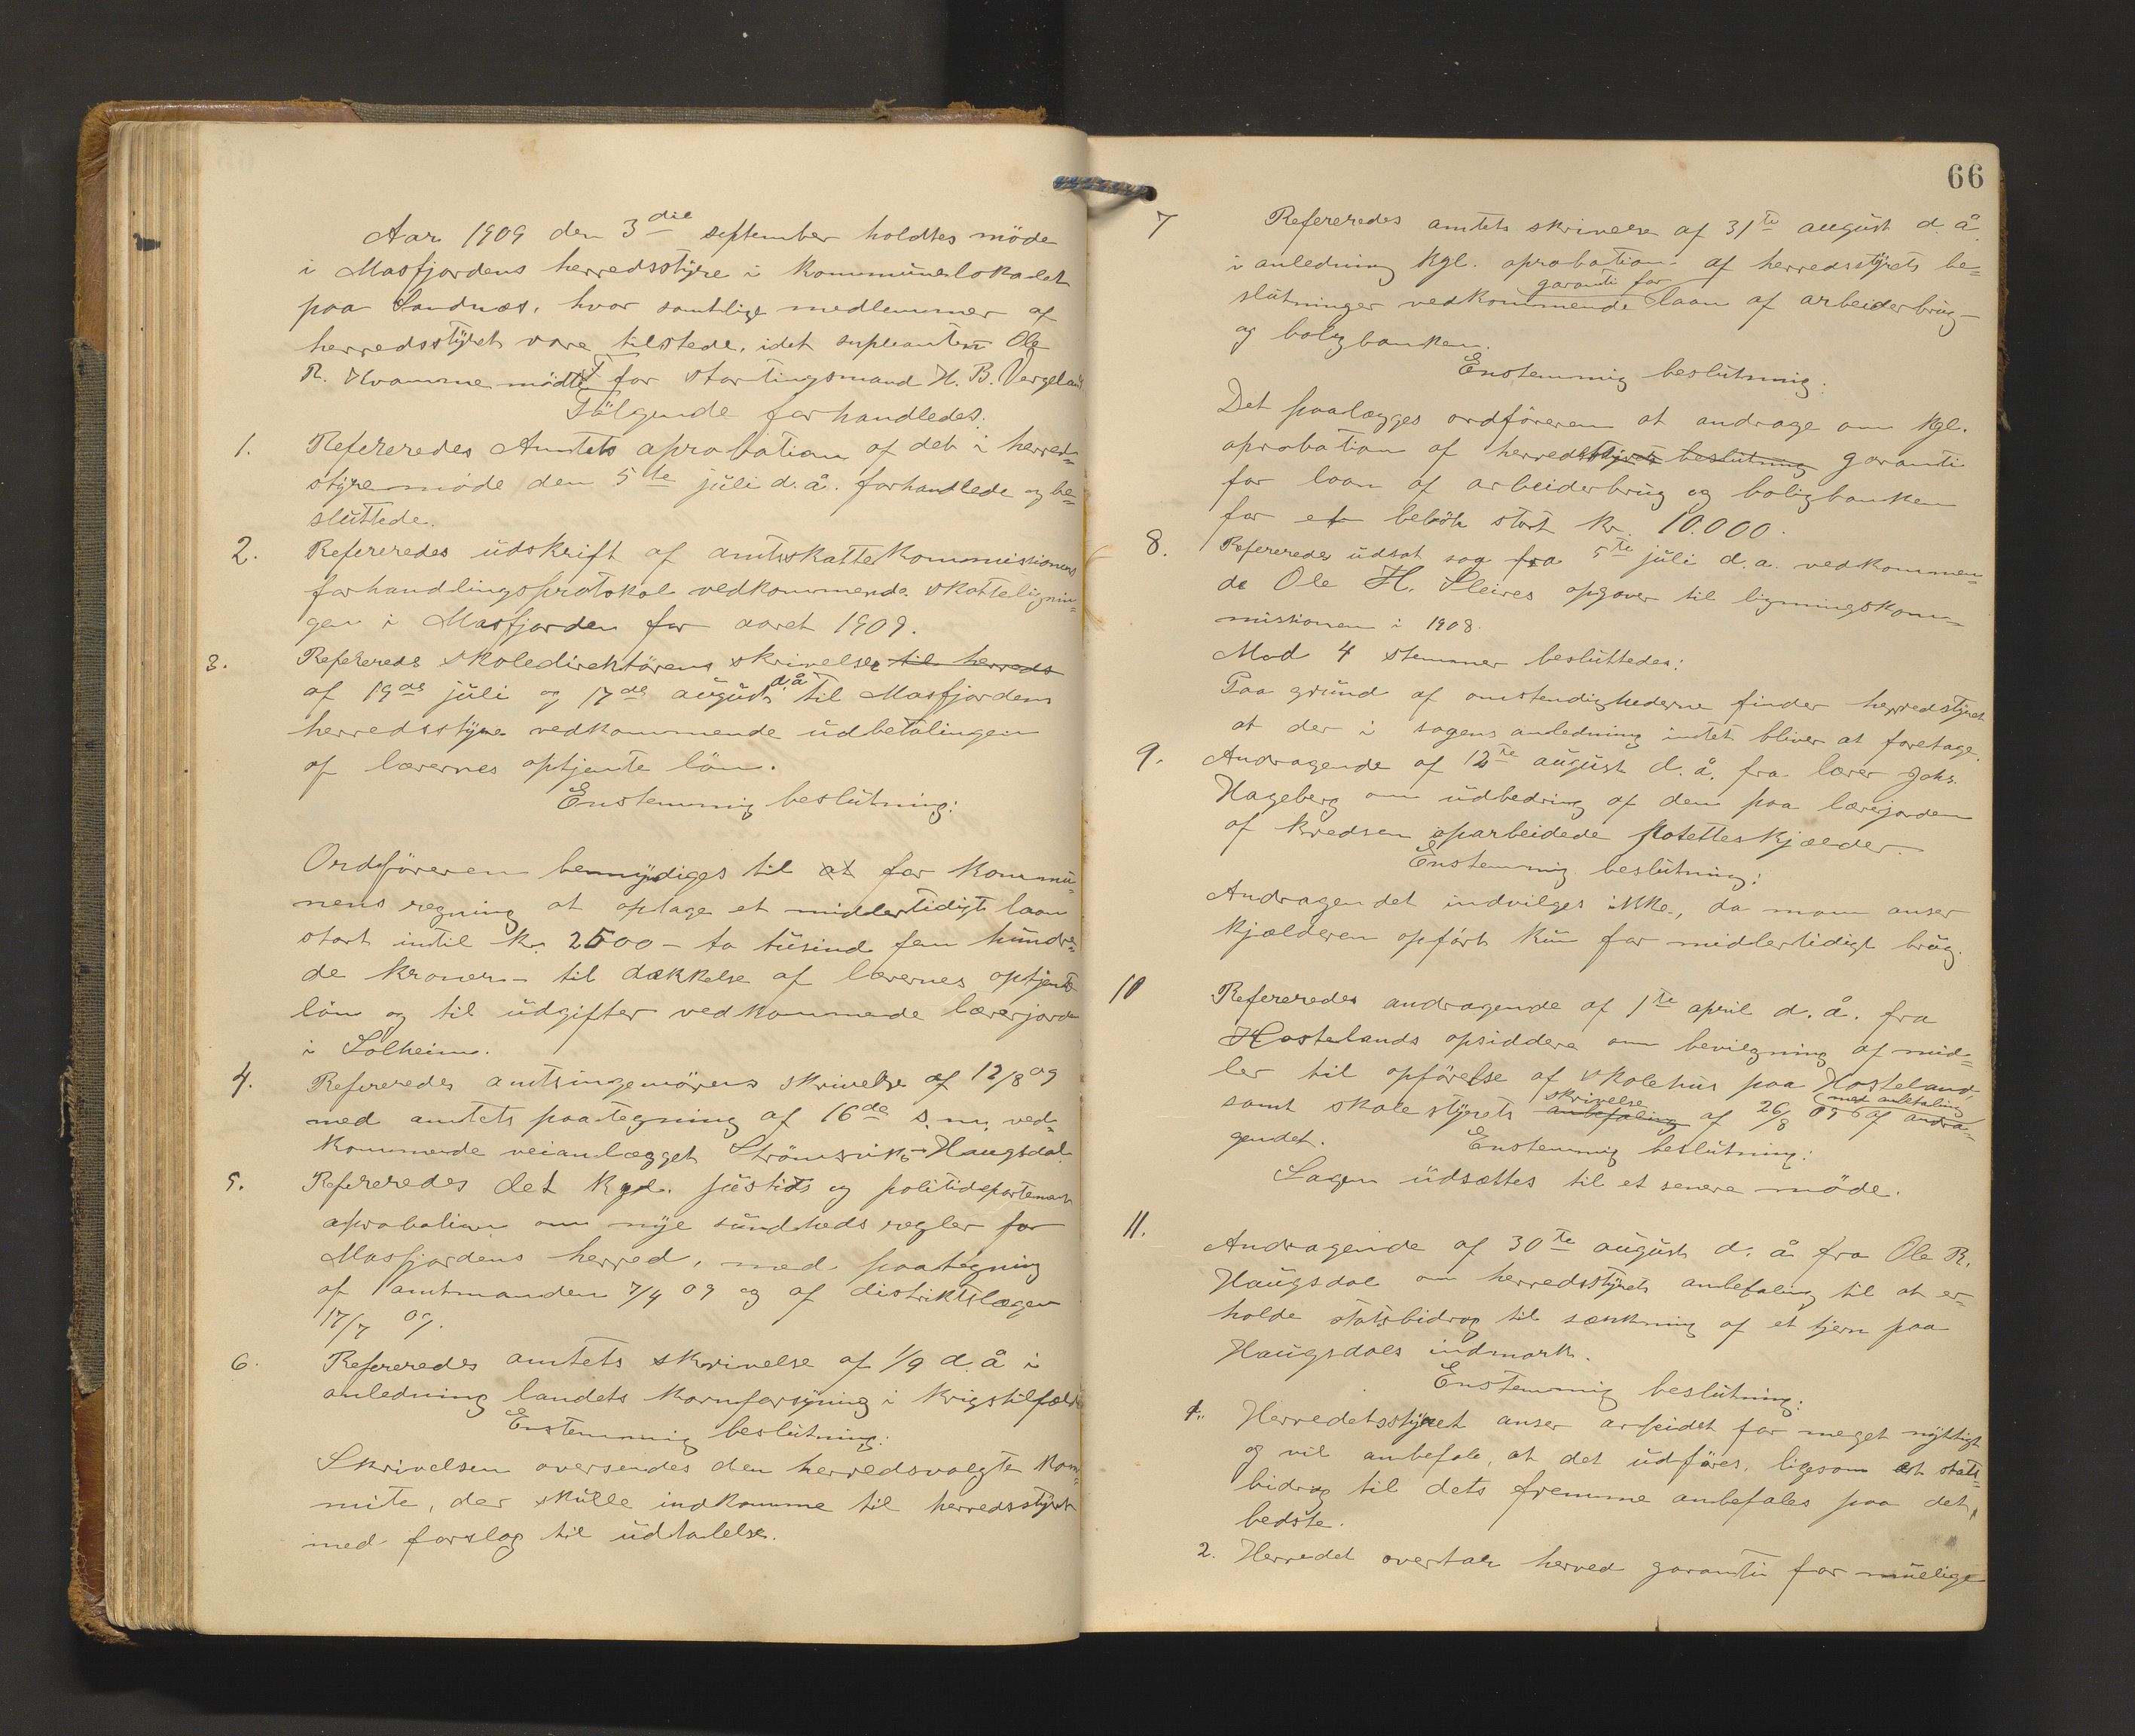 Aar 1909 den 3die september holdtes möde
i Masfjordens herredsstyre i kommunelokalet
paa Sandnæs, hvor samtlige medlemmer af
herredsstyret vare tilstede, idet supleanten Ole
R. Kvamme mödte for stortingsmand H. B. Vergeland.
Fölgende forhandledes:
1. Refereredes Amtets aprobation af det i herred=
styremöde den 5te juli d. å. forhandlede og be=
sluttede.
2. Refereredes udskrift af amtsskattekommissionens
forhandlingsprotokol vedkommende skattelignin=
gen i Masfjorden for aaret 1909.
3. Refereredes skoledirektörens skrivelser til herreds
af 19de juli og 17de august d. å. til Masfjordens
herredsstyre vedkommende udbetalingen
af lærernes optjente lön.
Enstemmig beslutning:
Ordföreren bemyndiges til at for kommu=
nens regning at optage et midlertidigt laan
stort indtil kr. 2500 – to tusind fem hundre=
de kroner – til dækkelse af lærernes optjente
lön og til udgifter vedkommende lærerjorden
i Solheim.
4. Refereredes amtsingeniörens skrivelse af 12/8 09
med amtets paategning af 16de s. m. ved=
kommende veianlægget Strömsvik – Haugsdal.
5. Refereredes det kgl. justits og politidepartements
aprobation om nye sundhedsregler for
Masfjordens herred, med paategning
af amtmanden 7/4 09 og af distriktslægen
17/7 09.
6. Refereredes amtets skrivelse af 1/9 d. å i
anledning landets kornforsyning i krigstilfælde
Enstemmig beslutning:
Skrivelsen oversendes den herredsvalgte kom=
mite, der skulle indkomme til herredsstyret
med forslag til udtalelse.
66
7 Refereredes amtets skrivelse af 31te august d. å.
i anledning kgl. aprobation af herredsstyrets be=
slutninger vedkommende garanti for laan af arbeiderbrug-
og boligbanken.
Enstemmig beslutning:
Det paalægges ordföreren at andrage om kgl.
aprobation af herredsstyrets beslutning garanti
for laan af arbeiderbrug og boligbanken
for et belöb stort kr. 10.000.
8. Refereredes udsat sag fra 5te juli d. a. vedkommen=
de Ole H. Sleires opgaver til ligningskom=
missionen i 1908.
Mod 4 stemmer besluttedes:
Paa grund af omstendighederne finder herredstyret
at der i sagens anledning intet bliver at foretage.
9. Andragende af 12te august d. å. fra lærer Johs.
Hageberg om udbedring af den paa lærerjorden
af kredsen oparbeidede potetteskjælder.
Enstemmig beslutning:
Andragendet indvilges ikke, da man anser
kjælderen opfört kun for midlertidigt brug.
10 Refereredes andragende af 1te april d. å. fra
Hostelands opsiddere om bevilgning af mid=
ler til opförelse af skolehus paa Hosteland,
samt skolestyrets anbefaling skrivelse af 26/8 09 med anbefaling af andra=
gendet. Enstemmig beslutning:
Sagen udsættes til et senere möde.
11. Andragende af 30te august d. å fra Ole R.
Haugsdal om herredsstyrets anbefaling til at er=
holde statsbidrag til sænkning af et tjern paa
Haugsdals indmark.
Enstemmig beslutning:
1. Herredetsstyret anser arbeidet for meget nyttigt
og vil anbefale, at det udföres, ligesom at stats=
bidrag til dets fremme anbefales paa det
bedste.
2. Herredet overtar herved garanti for mulige